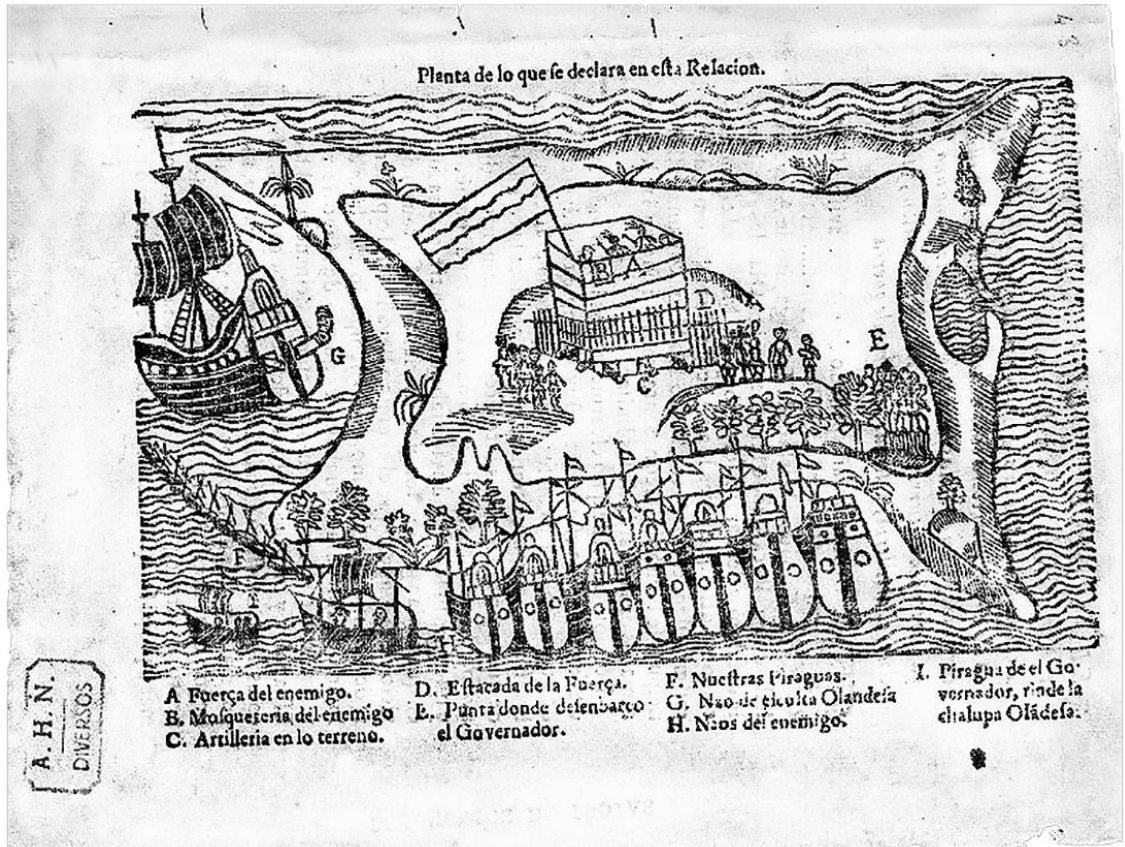 Planta de lo que se declara en esta Relacion.
B A
D
E
C
G
F
I
H
A Fuerça del enemigo.
B. Mosqueteria del enemigo
C. Artilleria en lo terreno.
D. Estacada de la Fuerça.
E. Punta donde desenbarco
el Governador.
F. Nuestras Piraguas.
G. Nao de escolta Olandesa
H. Naos del enemigo.
I. Piragua de el Go-
vernador, rinde la
chalupa Olãdesa.
A. H. N.
DIVERSOS